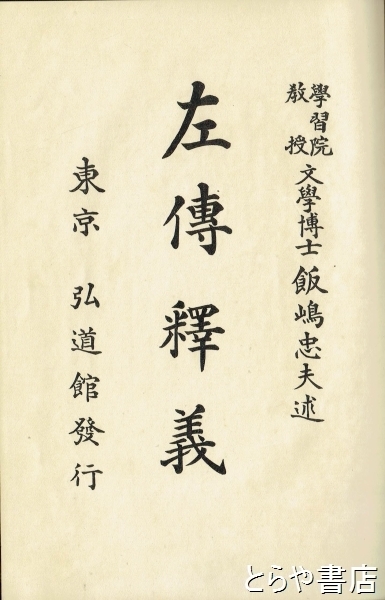 學習院教授 文學博士 飯嶋忠夫述
左傳釋義
東京 弘道館發行
とらや書店